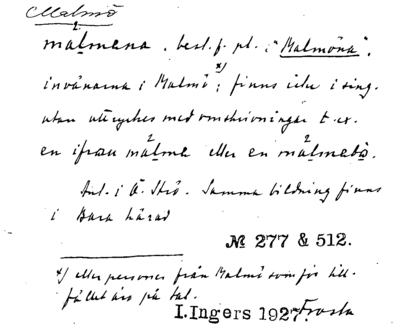 Malmö
målmena, best. f. pl. "Malmöna",
invånarna i Malmö x); finns icke i sing.
utan uttryckes med omskrivningar t. ex.
en ifrån målme eller en målmebo.
Ant. i Ö. Strö. Samma bildning finns
i Bara härad
№ 277 & 512.
x) eller personer från Malmö som för till-
fället äro på tal.
I. Ingers 1927. Frosta